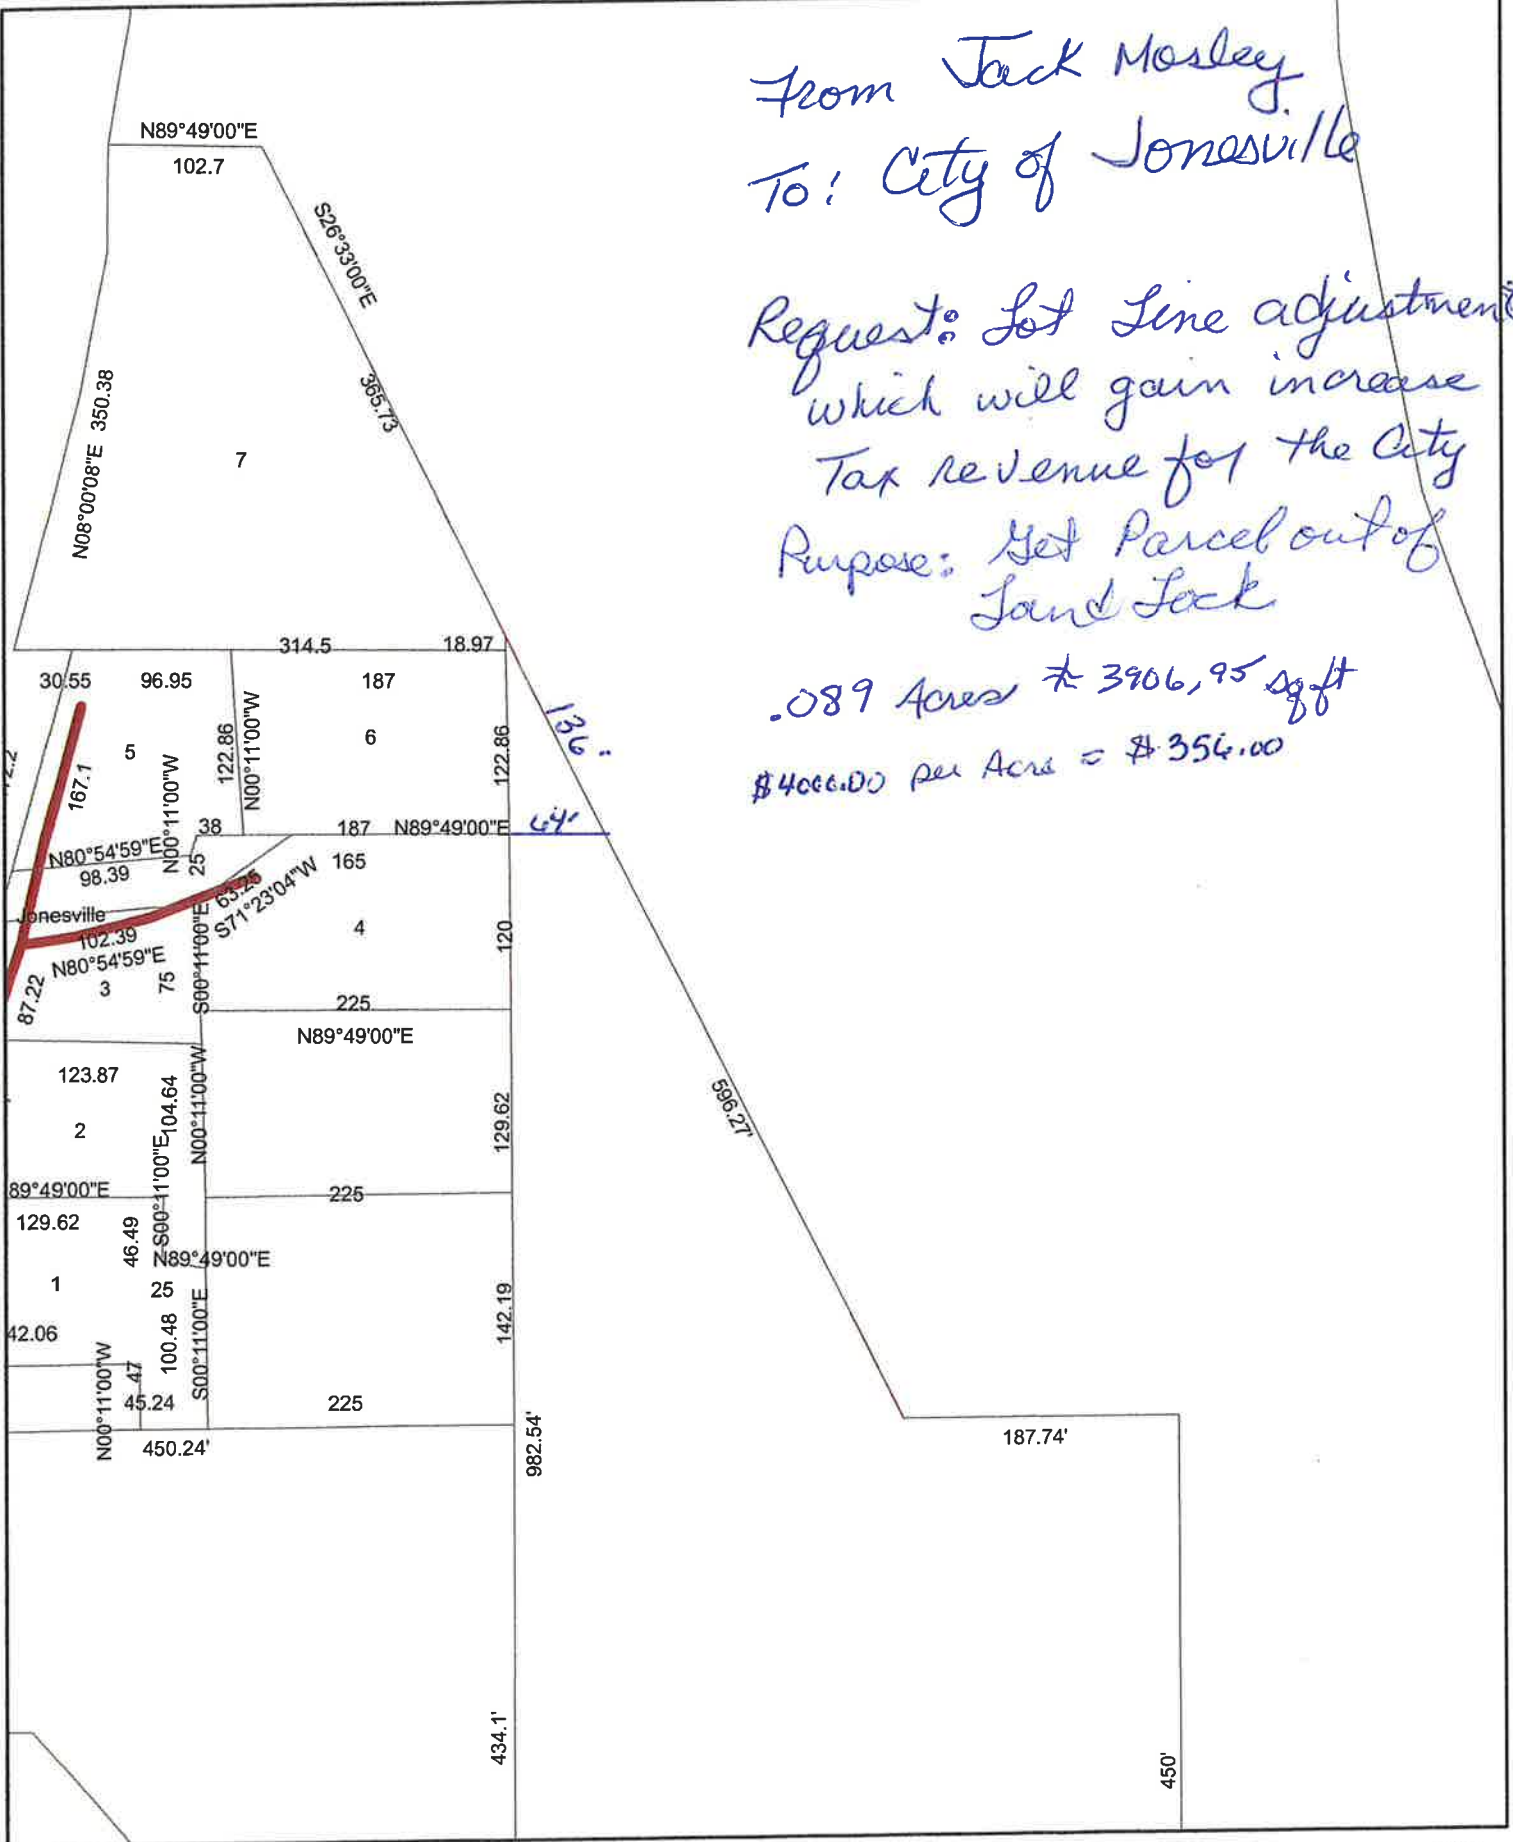 From Jack Mosley
To: City of Jonesville
Request: Lot Line adjustment
which will gain increase
Tax revenue for the City
Purpose: Get Parcel out of
Land Lock
.089 Acres ± 3906,95 sqft
$4000.00 per Acre = $356.00
N89°49'00"E
102.7
S26°33'00"E
365.73
N08°00'08"E 350.38
7
314.5
18.97
30.55
96.95
187
136'
5
6
122.86
N00°11'00"W
122.86
167.1
N00°11'00"W
38
187
N89°49'00"E
64'
N80°54'59"E
98.39
25
165
63.25
S71°23'04"W
Jonesville
102.39
N80°54'59"E
4
120
87.22
3
75
S00°11'00"E
225
N89°49'00"E
123.87
2
104.64
S00°11'00"E
N00°11'00"W
129.62
596.27'
89°49'00"E
225
129.62
46.49
N89°49'00"E
1
25
42.06
100.48
S00°11'00"E
142.19
N00°11'00"W
47
45.24
225
450.24'
982.54'
187.74'
434.1'
450'